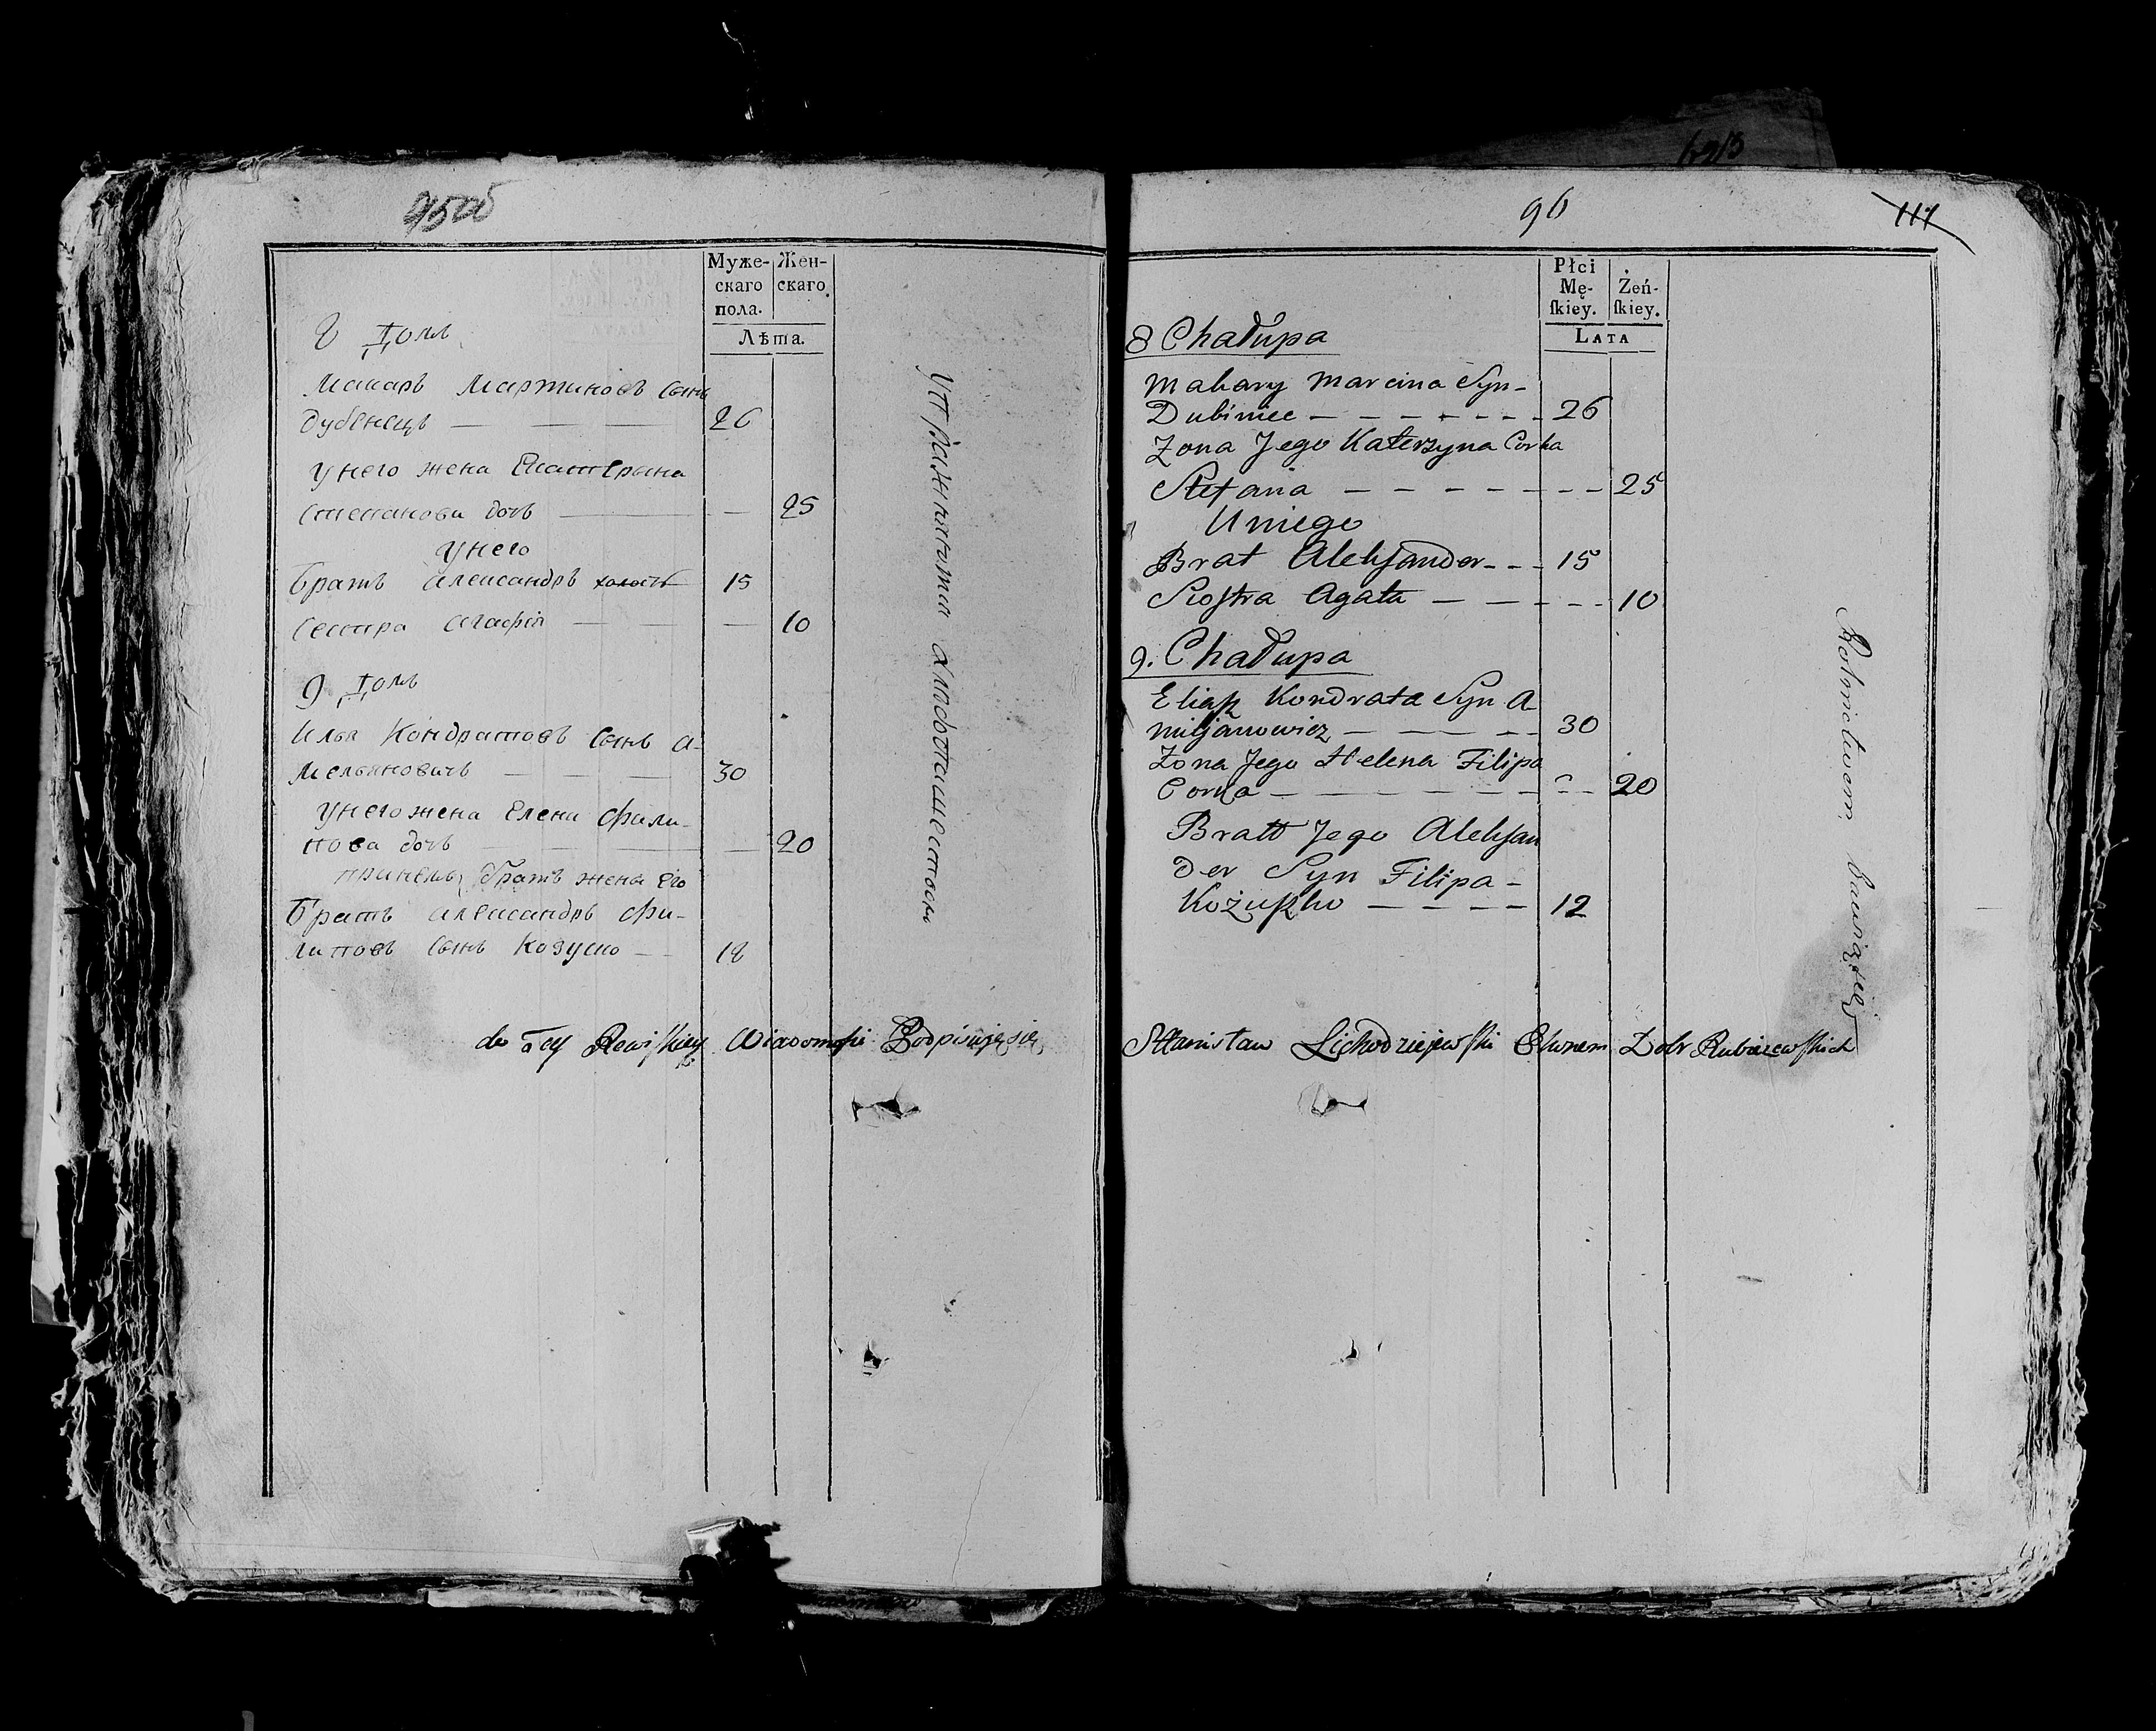 95об
Муже-
скаго
пола.
Жен-
скаго.
Лѣта.
8 Домъ
Макаръ Мартиновъ сынъ
Дубенецъ — — — 26
У него жена Екатерына
Степанова дочь — — 25
У него
Братъ Александръ холостъ 15
Сестра Агафія — — — 10
9 Домъ
Илья Кондратовъ сынъ А-
мельяновичъ — — — 30
У него жена Елена Фили-
пова дочь — — — 20
братъ жены его
Братъ Александръ Фи-
липовъ сынъ Козушко — — 12
Упражняются хлебопашествомъ
do Tey Rewiskiey Wiadomości Podpisuję się
96
117
Płci
Mę-
skiey.
Żeń-
skiey.
LATA
8 Chałupa
Makary Marcina Syn -
Dubiniec — — — 26
Zona Jego Katerzyna Corka
Stefana — — — 25
U niego
Brat Aleksander - - - 15
Siostra Agata — — - - 10
9. Chałupa
Eliasz Kondrata Syn A-
miljanowicz — — — 30
Zona Jego Helena Filipa
Corka — — — 20
Bratt Jego Aleksan
der Syn Filipa -
Kożuszko — — — 12
Rolnictwem bawią się
Stanisław Lichodziejewski Ekonom Dobr Rubieżewskich